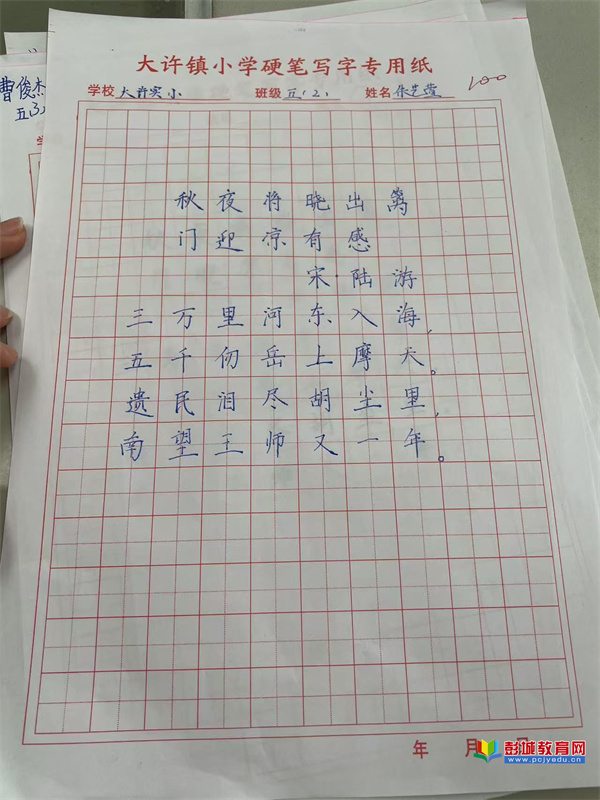 大许镇小学硬笔写字专用纸
学校 大许实小 班级 五(2) 姓名 朱芝莹
100
曹俊杰
秋夜将晓出篱
门迎凉有感
宋·陆游
三万里河东入海,
五千仞岳上摩天。
遗民泪尽胡尘里,
南望王师又一年。
年 月 日
彭城教育网
www.pcjyedu.cn